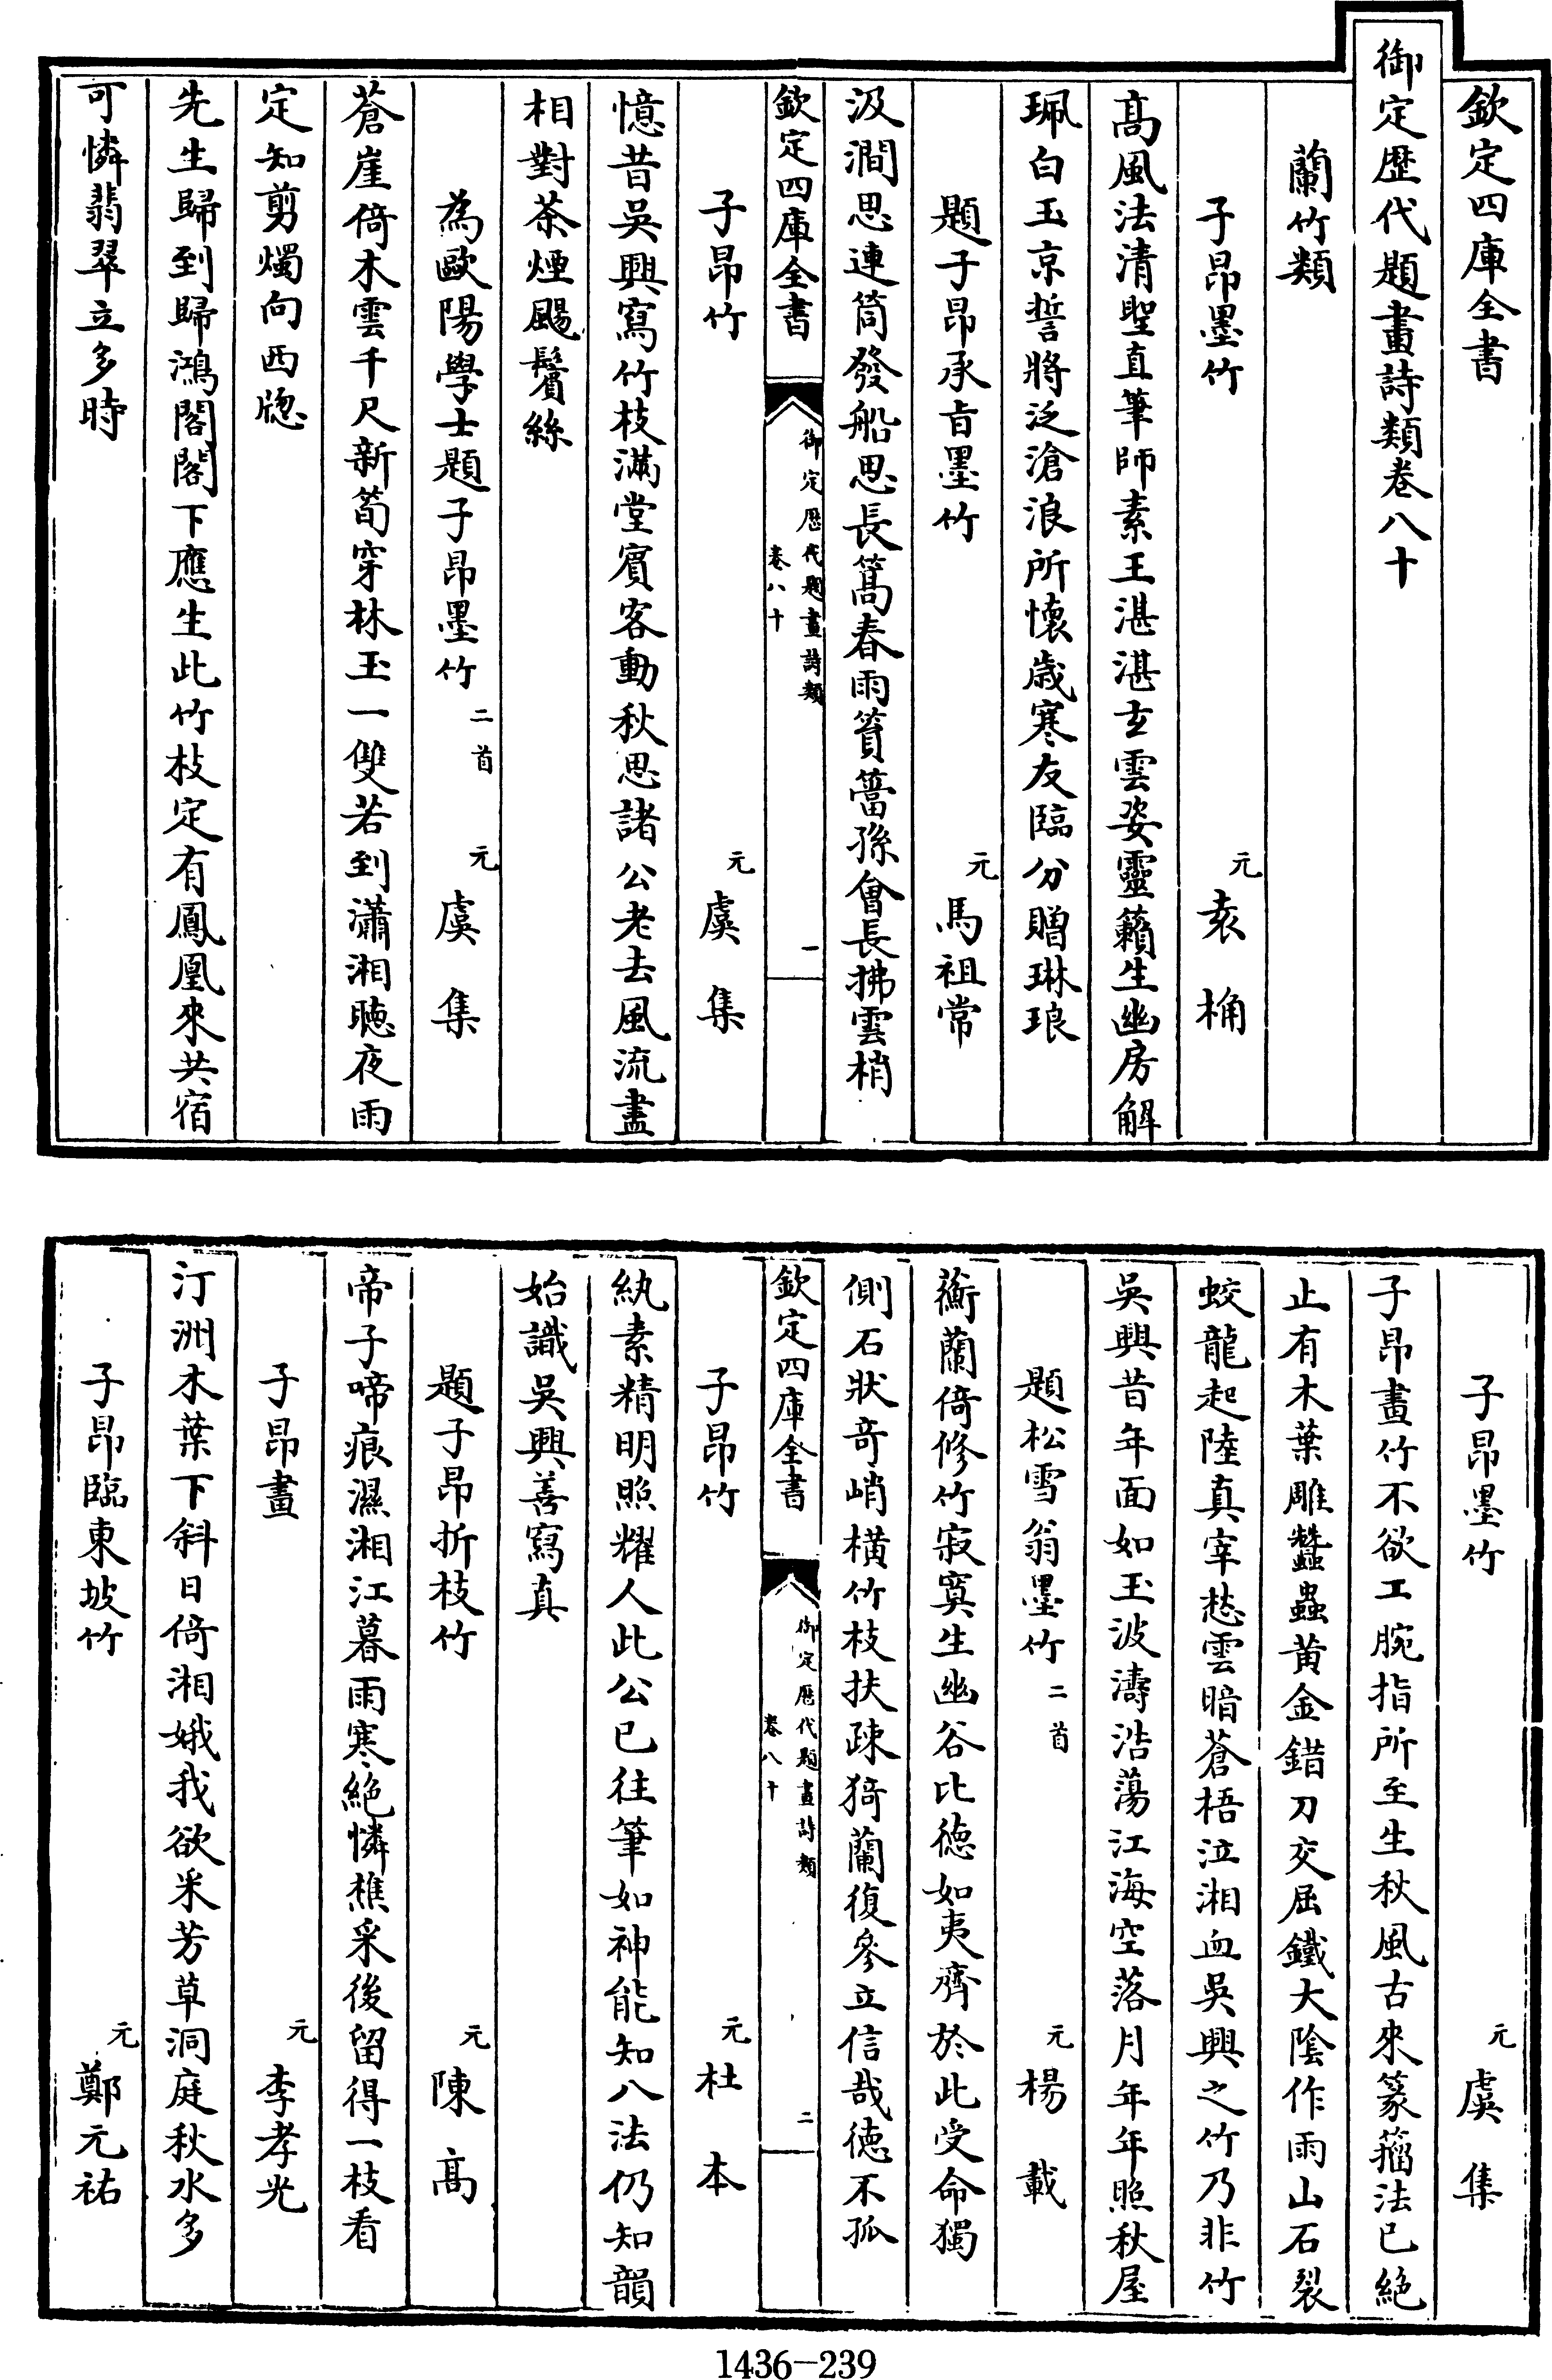 欽定四庫全書
御定歴代題畫詩類卷八十
蘭竹類
子昂墨竹 元 袁桷
高風法清聖直筆師素王湛湛玄雲姿靈籟生幽房解
珮白玉京誓將泛滄浪所懷歲寒友臨分贈琳琅
題子昂承旨墨竹 元 馬祖常
汲澗思連筒發船思長篙春雨篔簹孫會長拂雲梢
欽定四庫全書 御定歷代題畫詩類 卷八十 一
子昂竹 元 虞集
憶昔吳興寫竹枝滿堂賓客動秋思諸公老去風流盡
相對茶煙颺鬢絲
為歐陽學士題子昂墨竹 二首 元 虞集
蒼崖倚木雲千尺新筍穿林玉一雙若到瀟湘聽夜雨
定知剪燭向西牕
先生歸到歸鴻閣閣下應生此竹枝定有鳳凰來共宿
可憐翡翠立多時
子昂墨竹 元 虞集
子昂畫竹不欲工腕指所至生秋風古來篆籀法已絕
止有木葉雕蠶蟲黄金錯刀交屈鐵大陰作雨山石裂
蛟龍起陸真宰愁雲暗蒼梧泣湘血吳興之竹乃非竹
吳興昔年面如玉波濤浩蕩江海空落月年年照秋屋
題松雪翁墨竹 二首 元 楊載
蘅蘭倚修竹寂寞生幽谷比德如夷齊於此受命獨
側石狀奇峭橫竹枝扶疎猗蘭復參立信哉德不孤
欽定四庫全書 御定歷代題畫詩類 卷八十 二
子昂竹 元 杜本
紈素精明照耀人此公已往筆如神能知八法仍知韻
始識吳興善寫真
題子昂折枝竹 元 陳高
帝子啼痕濕湘江暮雨寒絕憐樵采後留得一枝看
子昂畫 元 李孝光
汀洲木葉下斜日倚湘娥我欲采芳草洞庭秋水多
子昂臨東坡竹 元 鄭元祐
1436-239